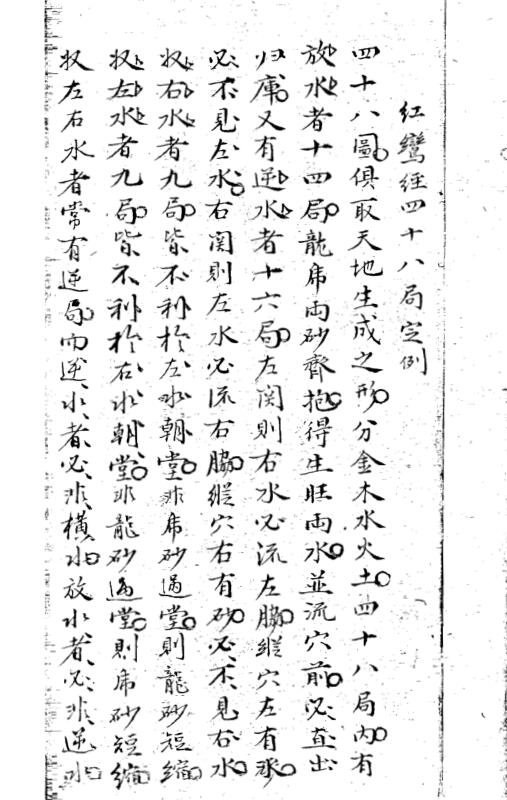 红鸞经四十八局定例
四十八圖俱取天地生成之形分金木水火土四十八局内有
放水者十四局龍虎两砂齊抱得生旺两水並流穴前必直出
归庫又有逆水者十六局左関則右水必流左脇縱穴左有水
必不見左水右関則左水必流右脇縱穴右有砂必不見右水
収右水者九局皆不利於左水朝堂非虎砂過堂則龍砂短縮
収左水者九局皆不利於右水朝堂非龍砂過堂則虎砂短縮
収左右水者常有逆局而逆水者必非横水放水者必非逆水